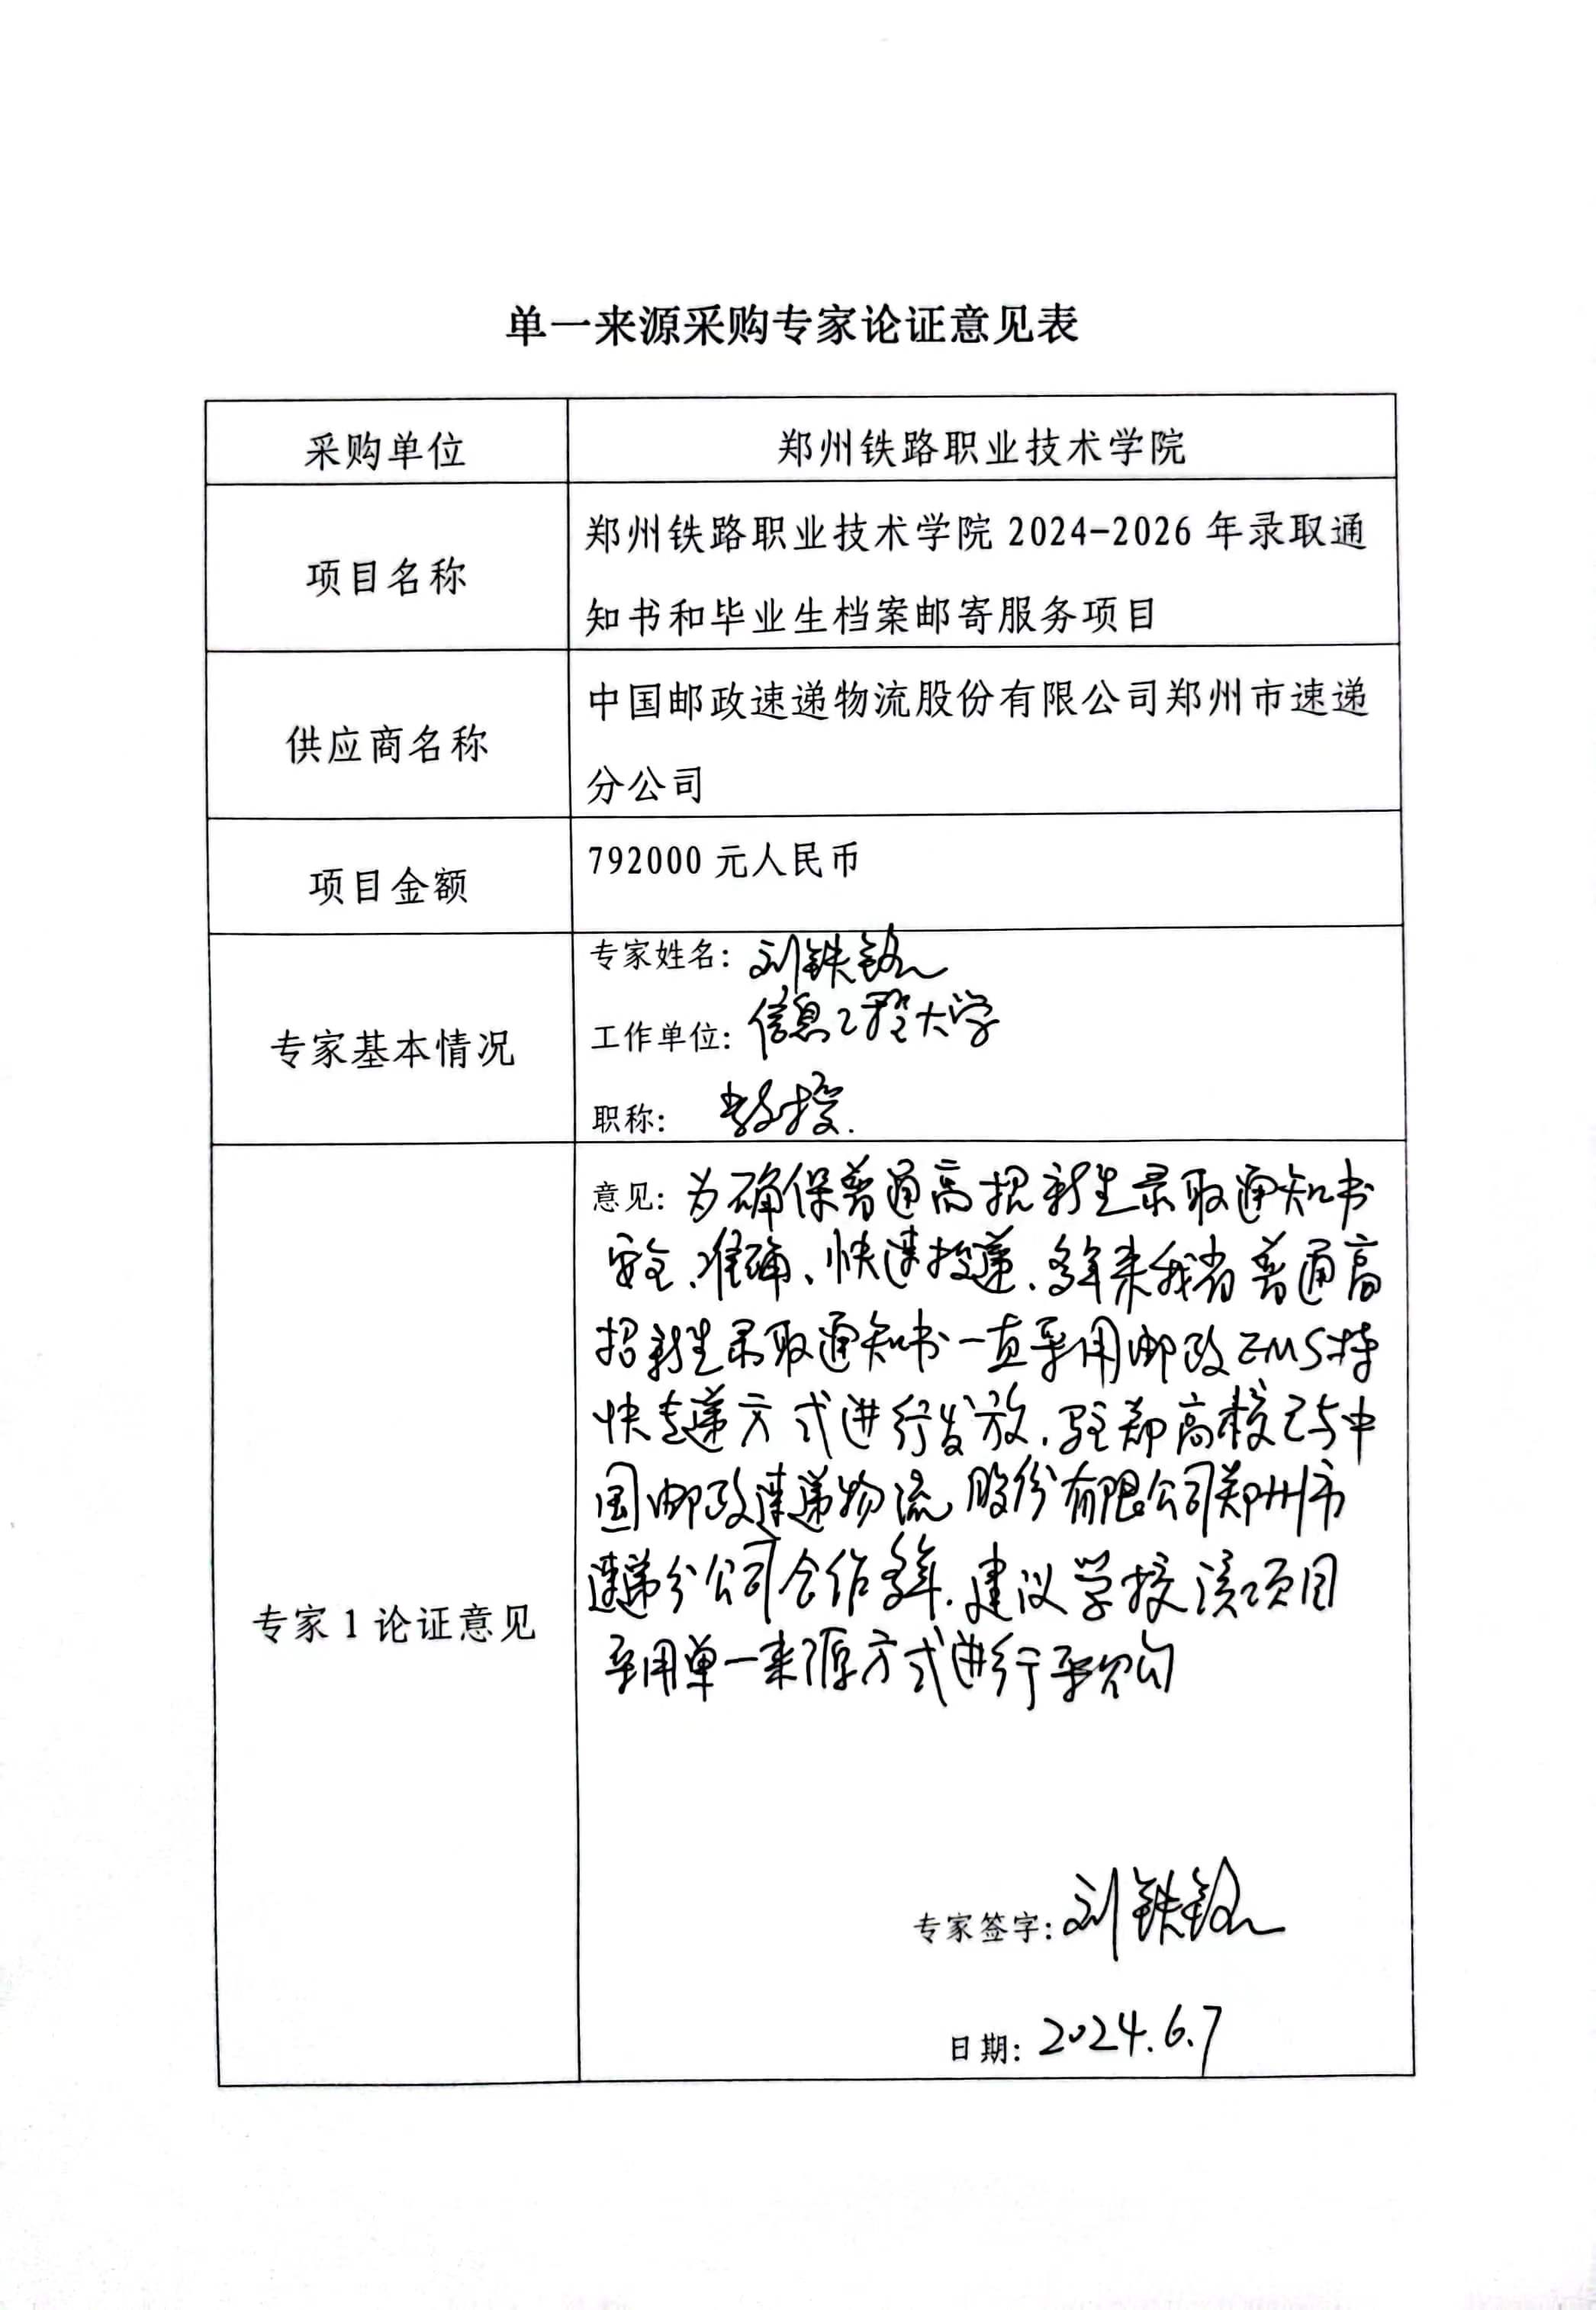 单一来源采购专家论证意见表
采购单位
郑州铁路职业技术学院
项目名称
郑州铁路职业技术学院 2024-2026 年录取通
知书和毕业生档案邮寄服务项目
供应商名称
中国邮政速递物流股份有限公司郑州市速递
分公司
项目金额
792000 元人民币
专家基本情况
专家姓名：刘铁铭
工作单位：信息工程大学
职称： 教授.
专家 1 论证意见
意见：为确保普通高招新生录取通知书
安全、准确、快速投递、多年来我省普通高
招新生录取通知书一直采用邮政EMS特
快专递方式进行发放.驻郑高校已与中
国邮政速递物流股份有限公司郑州市
速递分公司合作多年.建议学校该项目
采用单一来源方式进行采购
专家签字：刘铁铭
日期：2024.6.7